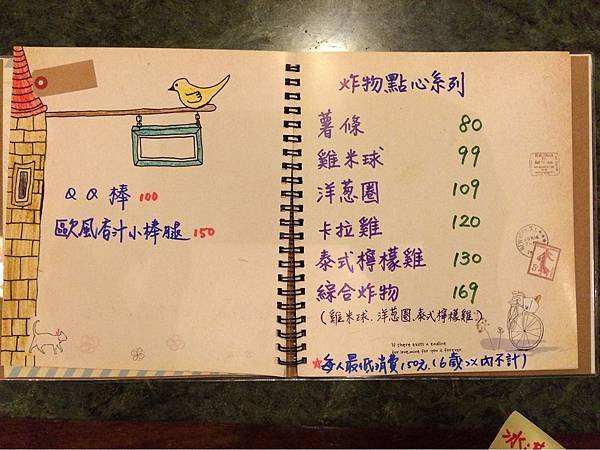 QQ棒 100
歐風香汁小棒腿 150
炸物點心系列
薯條 80
雞米球 99
洋蔥圈 109
卡拉雞 120
泰式檸檬雞 130
綜合炸物 169
(雞米球、洋蔥圈、泰式檸檬雞)
If there exists a endline
for love, mine for you it forever.
★每人最低消費150元(6歲以內不計)